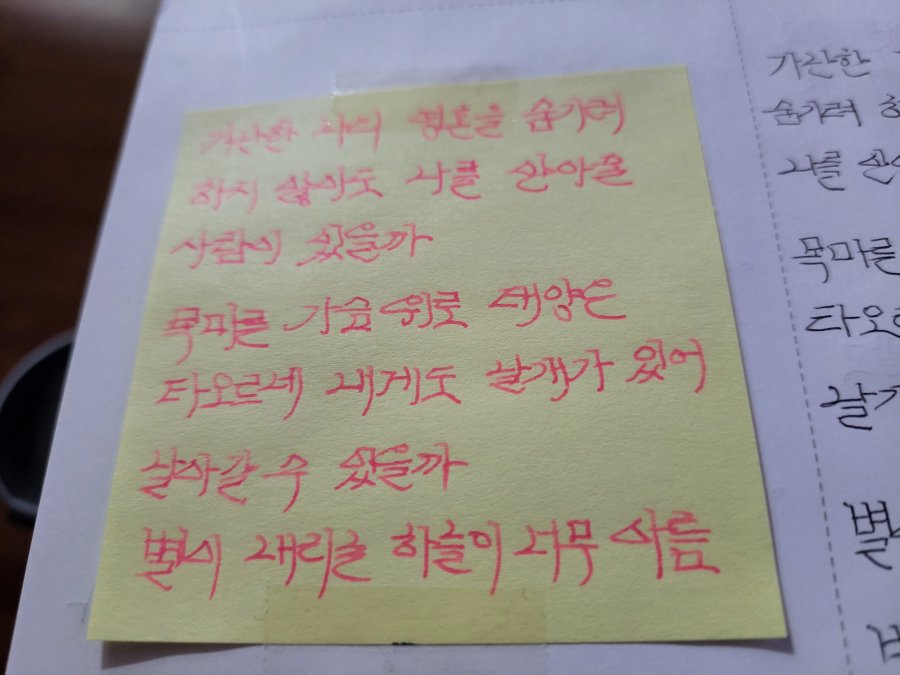 가난한 자의 영혼을 숨기려
하지 않아도 나를 안아줄
사람이 있을까
목마른 가슴 위로 태양은
타오르네 내게도 날개가 있어
날아갈 수 있을까
별이 내리는 하늘이 너무 아름
가난한
숨기려 하
나를 안아
목마른
타오르
날개
별이